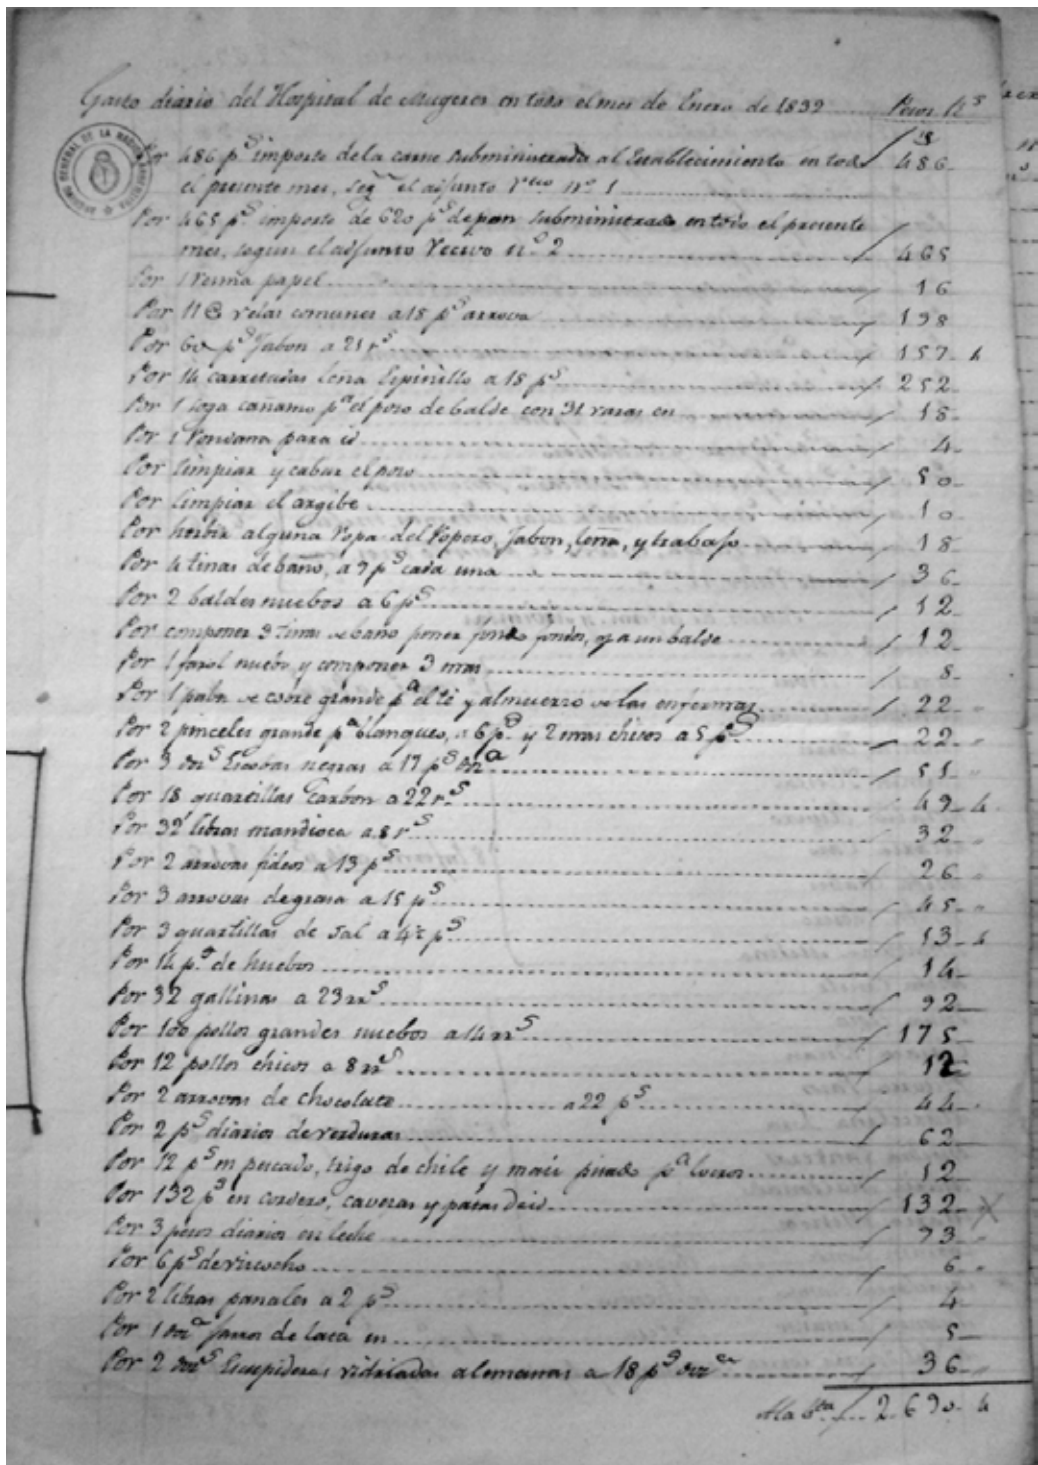 Gasto diario del Hospital de Mugeres en todo el mes de Enero de 1832 Pesos Rs
Por 486 ps importe de la carne subministrada al Establecimiento en todo 486
el presente mes, seg el adjunto rvo no 1
Por 465 ps importe de 620 ps de pan subministrado en todo el presente
mes, segun el adjunto recivo no 2 465
Por 1 resma papel 16
Por 11 @ velas comunes a 18 ps arrova 198
Por 60 ps Jabon a 21 rs 157 4
Por 14 carretadas leña Espinillo a 18 ps 252
Por 1 soga cañamo pa el poso de balde con 31 varas en 18
Por 1 rondana para id 4
Por limpiar y cabar el poso 50
Por limpiar el argibe 10
Por herbir alguna ropa del ropero, jabon, leña, y trabajo 18
Por 4 tinas de baño, a 9 ps cada una 36
Por 2 baldes nuebos a 6 ps 12
Por componer 3 tinas de baño poner fondos, y a un balde 12
Por 1 farol nuebo y componer 3 mas 8
Por 1 paba de cobre grande pa el té y almuerzo de las enfermas 22
Por 2 pinceles grande pa blanqueo, a 6 ps y 2 mas chicos a 5 ps 22
Por 3 dozs Escobas negras a 17 ps doza 51
Por 18 quartillas Carbon a 22 rs 49 4
Por 32 libras mandioca a 8 rs 32
Por 2 arrovas fideos a 13 ps 26
Por 3 arrovas de grasa a 15 ps 45
Por 3 quartillas de Sal a 4½ ps 13 4
Por 14 ps de huebos 14
Por 32 gallinas a 23 rrs 92
Por 100 pollos grandes nuebos a 14 rrs 175
Por 12 pollos chicos a 8 rrs 12
Por 2 arrovas de chocolate a 22 ps 44
Por 2 ps diarios de verduras 62
Por 12 ps en pescado, trigo de chile y mais pisado pa locros 12
Por 132 ps en cordero, caveras y patas de id 132
Por 3 pesos diarios en leche 93
Por 6 ps de viscocho 6
Por 2 libras panales a 2 ps 4
Por 1 doza jarros de lata en 5
Por 2 dozs Escupideras vidriadas alemanas a 18 ps doza 36
Ala bta 2690 4